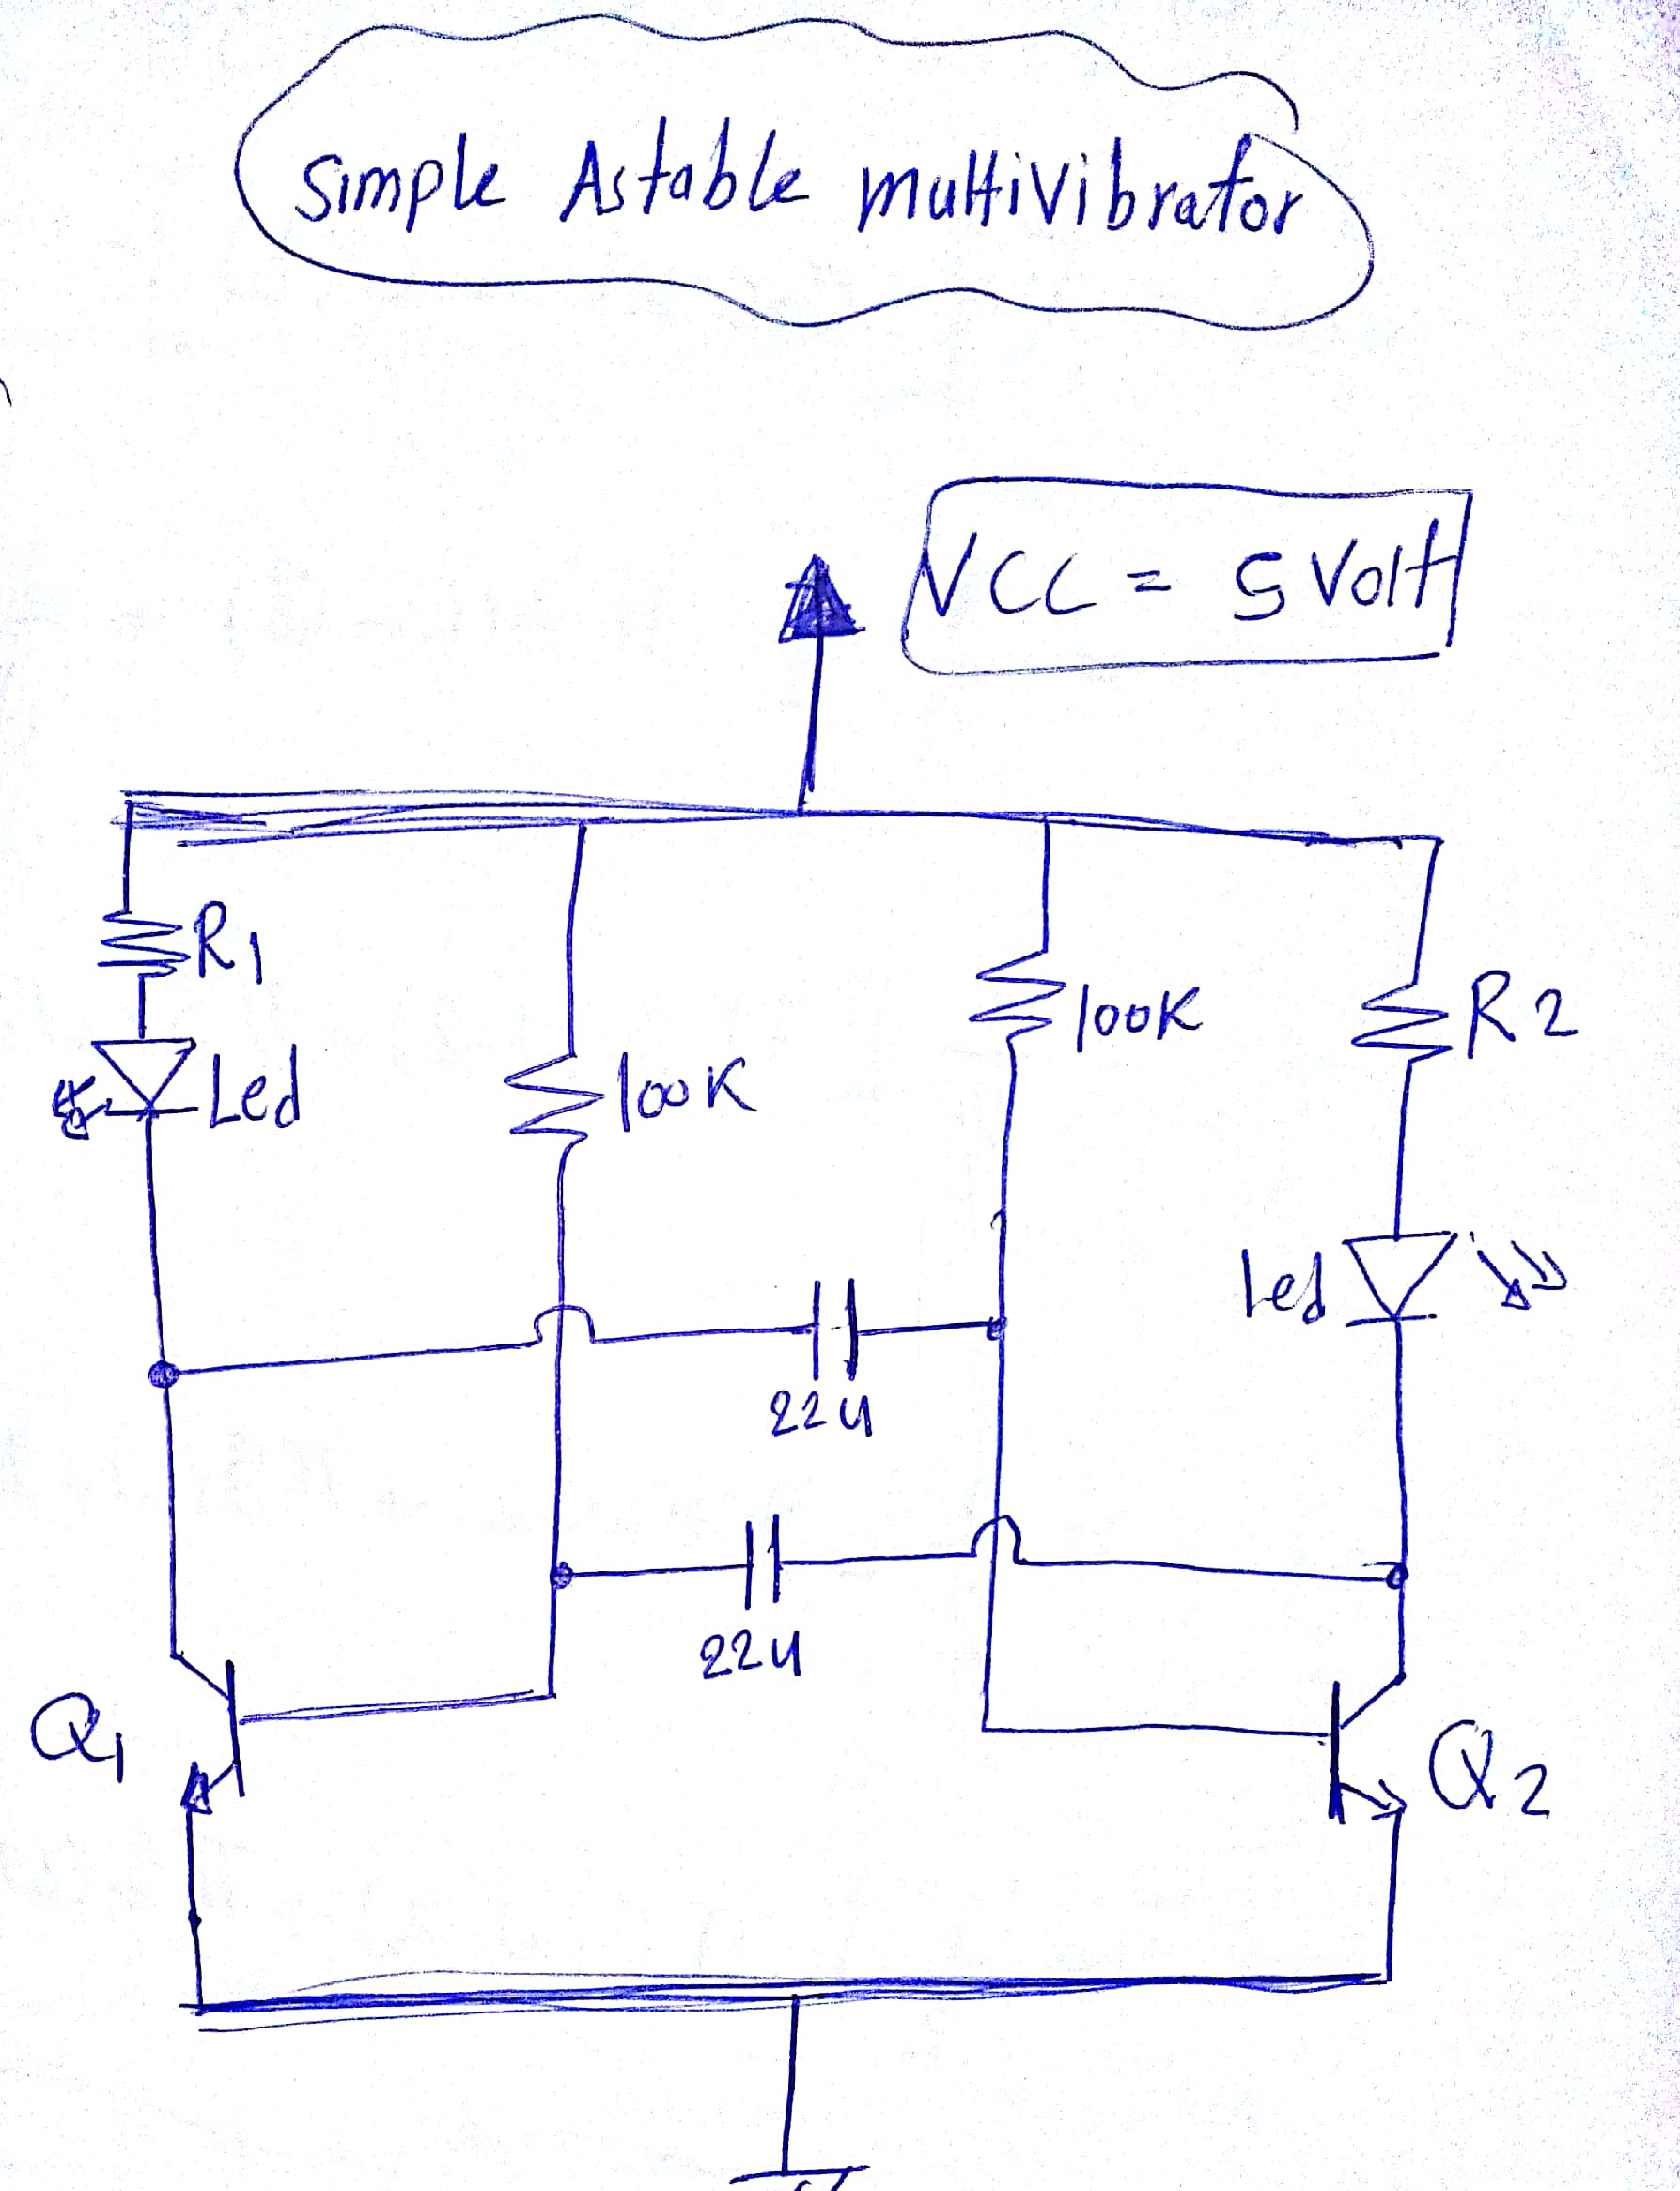 Simple Astable multivibrator
VCC = 5 Volt
R1
Led
100K
100K
R2
Led
22u
22u
Q1
Q2